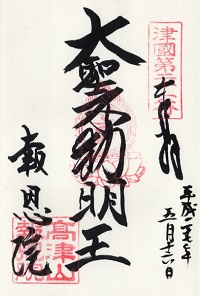 奉拝
平成二七年
五月十六日
大聖不動明王
報恩院
津國第三十六
高津山
報恩院